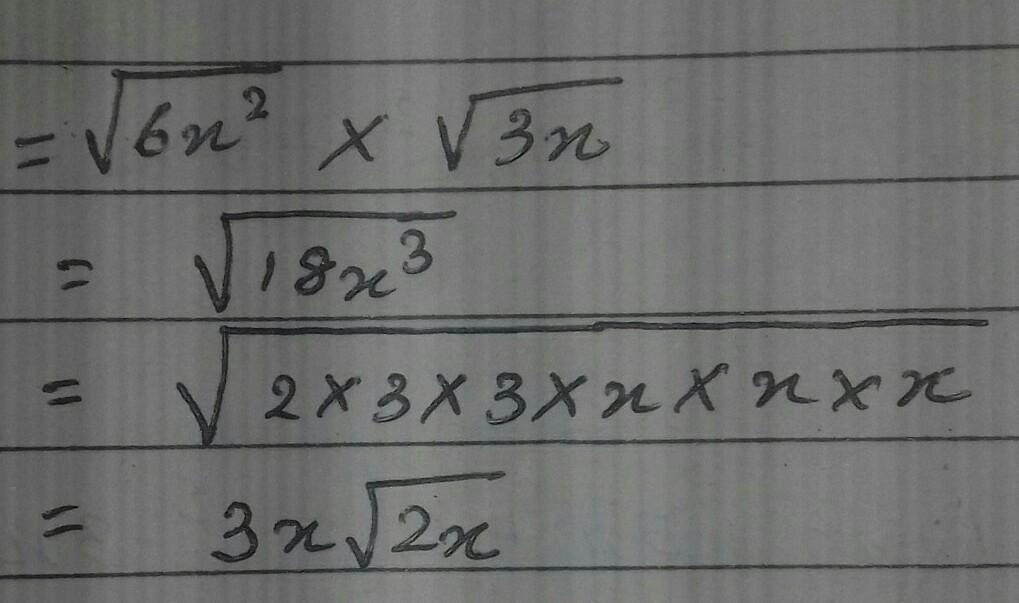 = √6x² × √3x
= √18x³
= √2×3×3×x×x×x
= 3x√2x